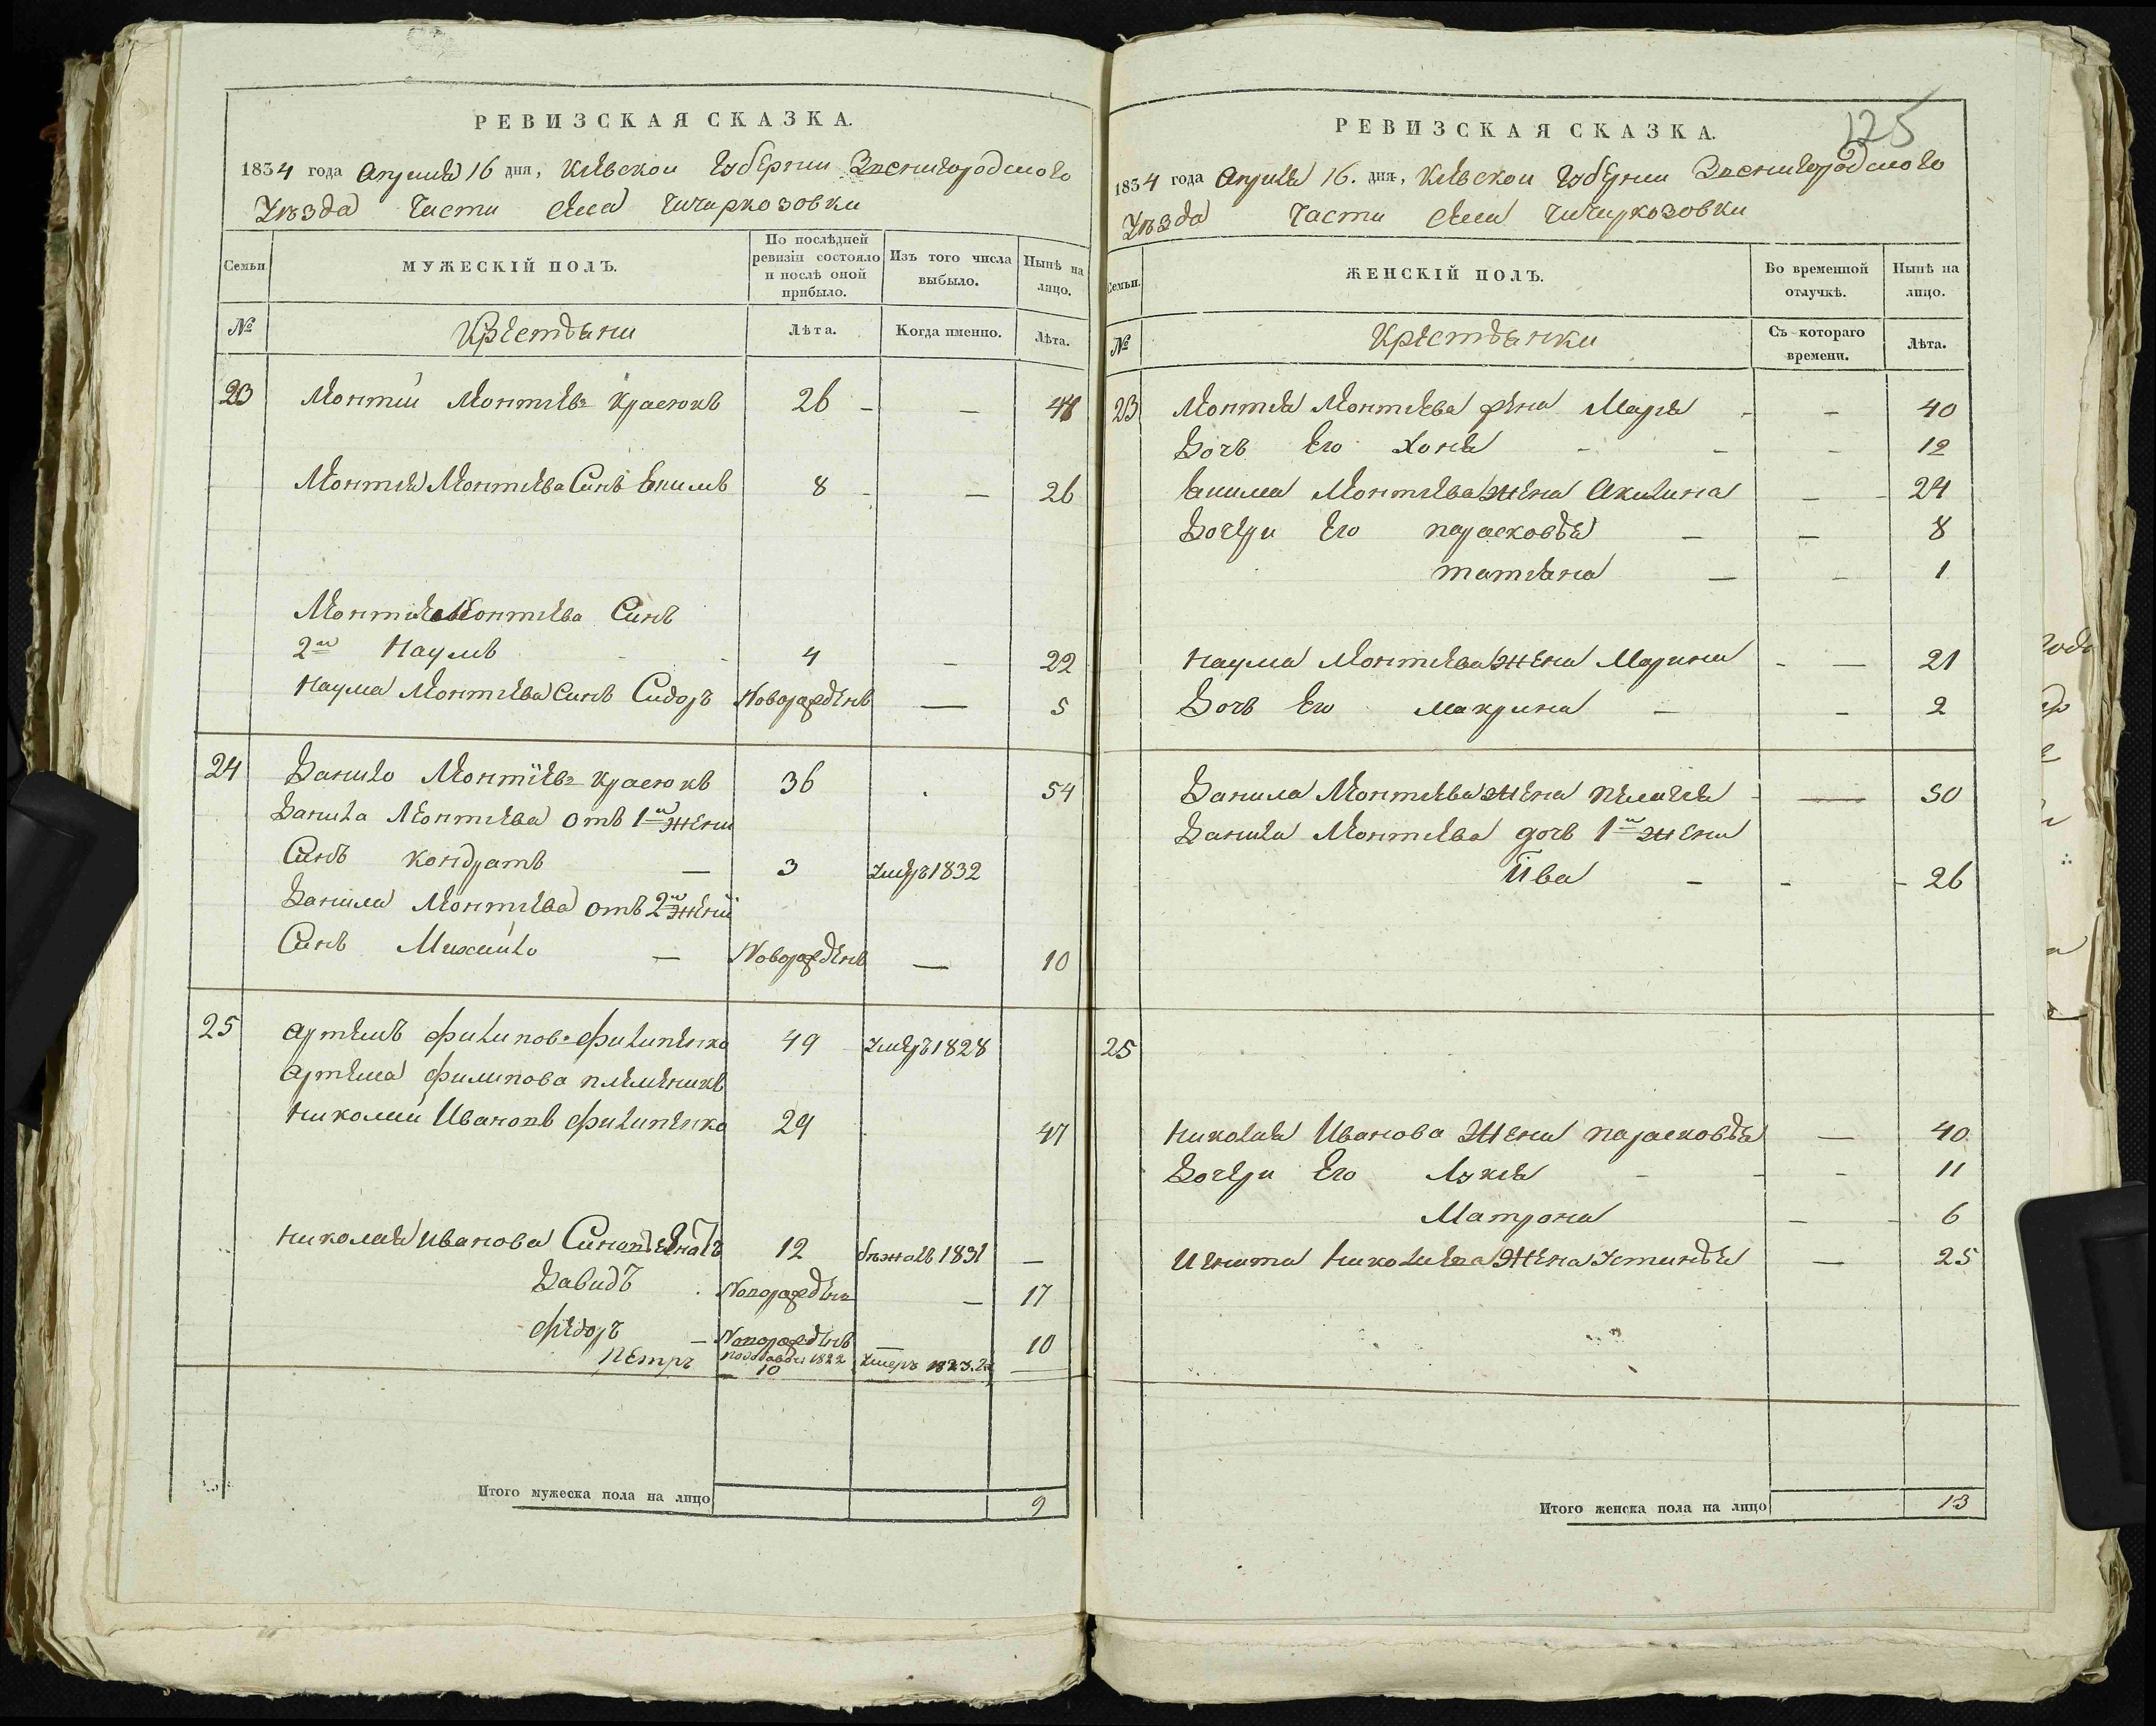 РЕВИЗСКАЯ СКАЗКА.
1834 года Апрѣля 16 дня, Кіевской Губерніи Звенигородского
Уѣзда Части села Чичиркозовки
Семьи.
МУЖЕСКІЙ ПОЛЪ.
По послѣдней ревизіи состояло и послѣ оной прибыло.
Изъ того числа выбыло.
Нынѣ на лицо.
№
Крестьяни
Лѣта.
Когда именно.
Лѣта.
23 Монтій Монтіевъ Красюкъ 26 - — 48
Монтія Монтіева Синъ Екимъ 8 - — 26
Монтія Монтіева Синъ
2й Наумъ - - 4 — 22
Наума Монтіева Синъ Сидоръ Новорожденъ — 5
24 Данило Монтіевъ Красюкъ 36 . 54
Данила Монтіева отъ 1й жени
Синъ Кондратъ — 3 Умеръ 1832
Данила Монтіева отъ 2й жени
Синъ Михайло — Новорожденъ — 10
25 Артемъ Филиповъ Филипенко 49 Умеръ 1828
Артема Филипова племеникъ
Николай Ивановъ Филипенко 29 47
Николая Иванова Синовья 12 бѣжалъ 1831 —
Давидъ Новорожденъ — 17
Федоръ — Новорожденъ — 10
Петръ 1822 10 Умеръ 1823
Итого мужеска пола на лицо 9
125
РЕВИЗСКАЯ СКАЗКА.
1834 года Апрѣля 16. дня, Кіевской Губерніи Звенигородского
Уѣзда Части села Чичиркозовки
Семьи.
ЖЕНСКІЙ ПОЛЪ.
Во временной отлучкѣ.
Нынѣ на лицо.
№
Крестьянки
Съ котораго времени.
Лѣта.
23 Монтія Монтіева жена Марія - — 40
Дочь Его Хоня - - — 12
Екима Монтіева жена Акилина — - 24
Дочери Его Парасковья — — 8
Татіана — — 1
Наума Монтіева жена Марина - — 21
Дочь Его Макрина — — 2
Данила Монтіева жена Пелагея - — 50
Данила Монтіева дочь 1й жени
Ива — - - 26
25
Николая Иванова жена Парасковья — 40
Дочери Его Лукія - - — 11
Матрона — - 6
Николаева жена Устинья — 25
Итого женска пола на лицо 13